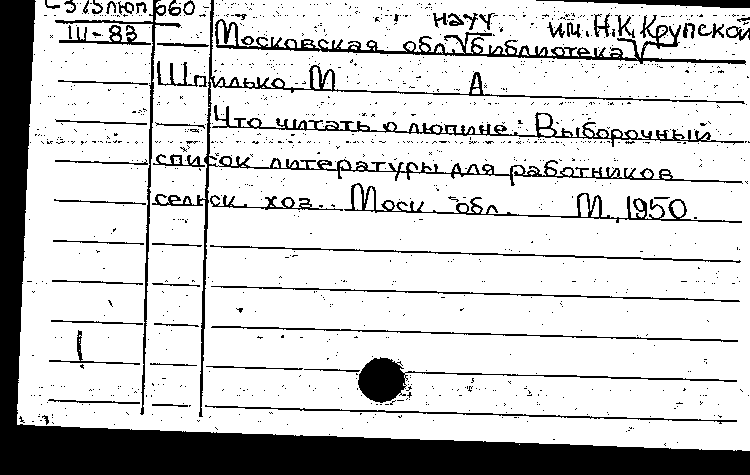 375люп. 660
III-83
Московская обл. науч. библиотека им. Н.К. Крупской
Шпилько, М А
Что читать о люпине: Выборочный
список литературы для работников
сельск. хоз. Моск. обл. М., 1950.